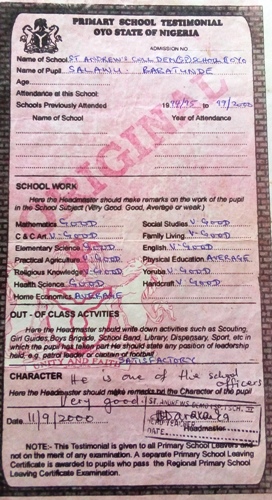 PRIMARY SCHOOL TESTIMONIAL
OYO STATE OF NIGERIA
ADMISSION NO.
Name of School ST. ANDREW'S COLL DEM SCHOOL II OYO
Name of Pupil SALAWU BABATUNDE
Age
Attendance at this School:
Schools Previously Attended 1994/95 to 99/2000
Name of School Year of Attendance
ORIGINAL
SCHOOL WORK
Here the Headmaster should make remarks on the work of the pupil
in the School Subject (Very Good. Good, Average or weak.)
Mathematics GOOD Social Studies V. GOOD
C & C Art V. GOOD Family Living V. GOOD
Elementary Science GOOD English V. GOOD
Practical Agriculture V. GOOD Physical Education AVERAGE
Religious Knowledge V. GOOD Yoruba V. GOOD
Health Science GOOD Handcraft V. GOOD
Home Economics AVERAGE
OUT - OF CLASS ACTIVITIES
Here the Headmaster should write down activities such as Scouting,
Girl Guides, Boys Brigade, School Band, Library Dispensary, Sport, etc in
which the pupil has taken part He should state any position of leadership
held - e.g. patrol leader or captain of football
SATISFACTORY
CHARACTER He is one of the school
officers
Here the Headmaster should make remarks on the Character of the pupil
Very good
HEAD TEACHER
Date 11/9/2000 Headmaster
DATE
NOTE:- This Testimonial is given to all Primary School Leavers and
not on the merit of any examination. A separate Primary School Leaving
Certificate is awarded to pupils who pass the Regional Primary School
Leaving Certificate Examination.